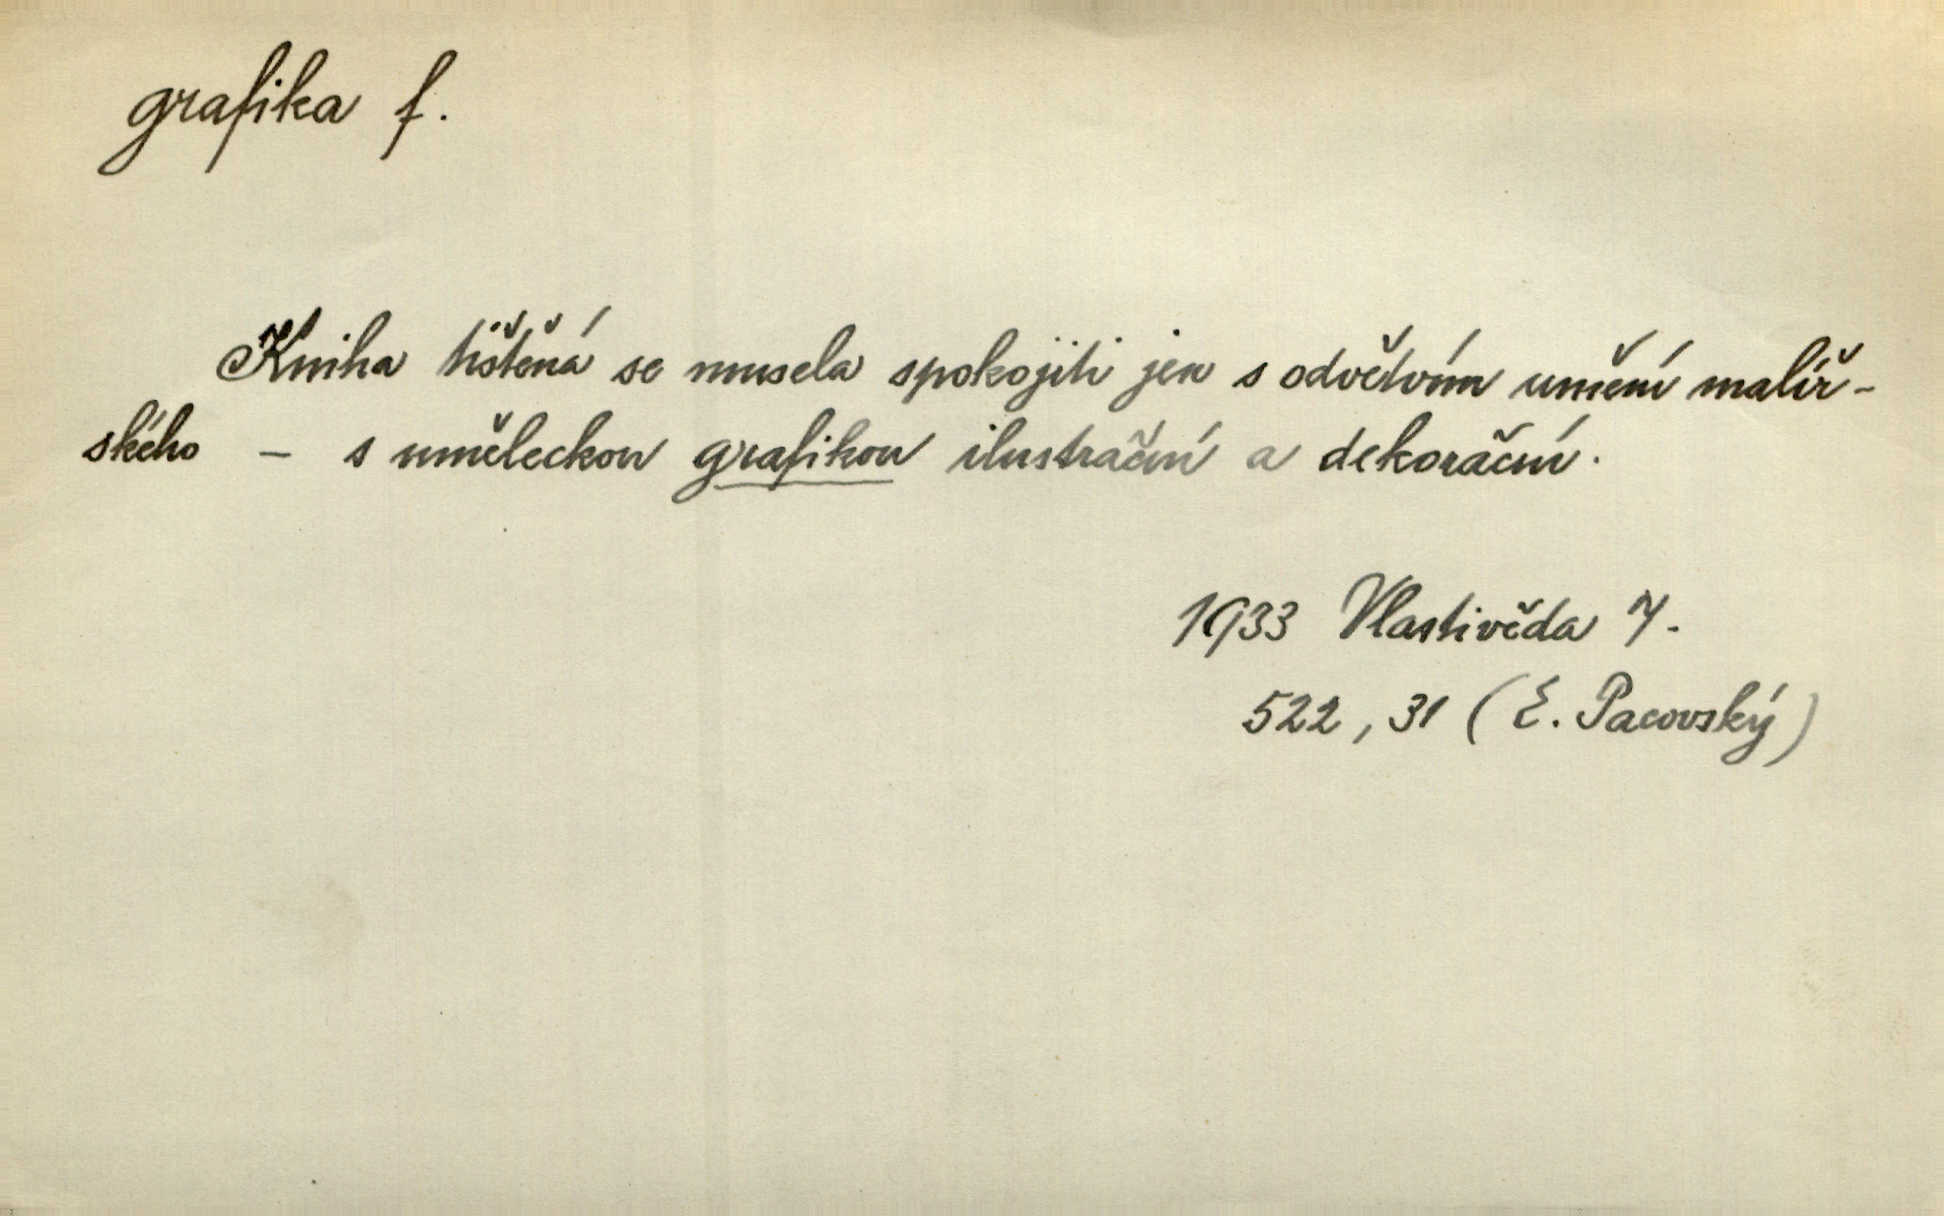 grafika f.
Kniha tištěná se musela spokojiti jen s odvětvím umění malíř-
ského – s uměleckou grafikou ilustrační a dekorační.
1933 Vlastivěda 7.
522, 31 (E. Pacovský)